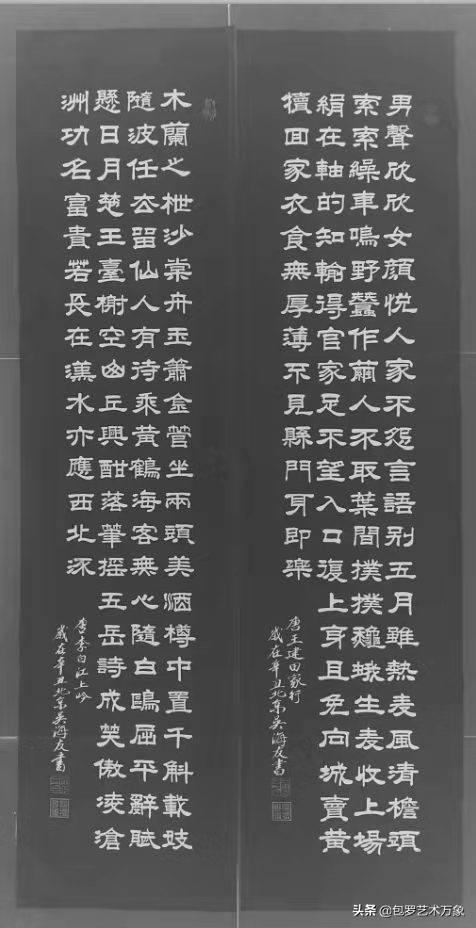 男聲欣欣女顏悅人家不怨言語別五月雖熱麦風清檐頭
索索繰車鳴野蠶作繭人不取葉間撲撲龝蛾生麦收上場
絹在軸的知輸得官家足不望入口復上身且免向城賣黃
犢回家衣食無厚薄不見縣門身即樂
唐王建田家行
歲在辛丑北京吳海友書
木蘭之枻沙棠舟玉簫金管坐兩頭美酒樽中置千斛載妓
隨波任去留仙人有待乘黃鶴海客無心隨白鷗屈平辭賦
懸日月楚王臺榭空山丘興酣落筆搖五岳詩成笑傲凌滄
洲功名富貴若長在漢水亦應西北流
唐李白江上吟
歲在辛丑北京吳海友書
头条 @包罗艺术万象